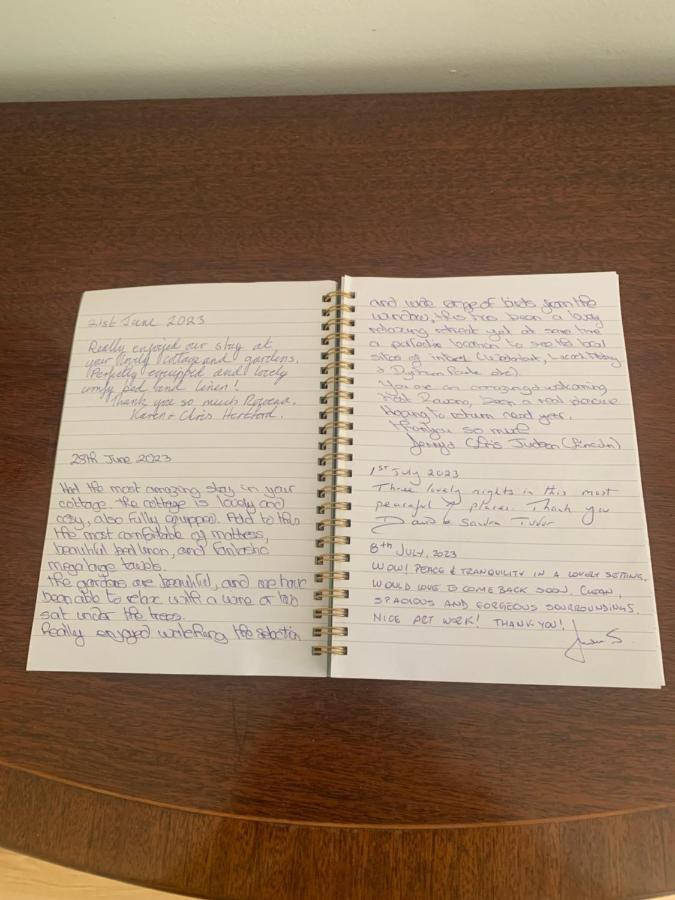 21st June 2023
Really enjoyed our stay at
your lovely cottage and gardens.
Perfectly equipped and lovely
comfy bed and linen!
Thank you so much Rowena.
Karen + Chris Hertford.
28th June 2023
Had the most amazing stay in your
cottage. the cottage is lovely and
cosy, also fully equipped. Add to this
the most comfortable of mattress,
beautiful bed linen, and fantastic
mega large towels.
the gardens are beautiful, and we have
been able to relax with a wine or two
sat under the trees.
Really enjoyed watching the selection
and wide range of birds from the
window, this has been a lovely
relaxing retreat yet at same time
a perfect location to see the local
sites of interest
You are an amazing & welcoming
host Rowena, been a real pleasure
Hoping to return next year.
thankyou so much
Chris Judson (Lincoln)
1ST July 2023
Three lovely nights in this most
peaceful of places. Thank you
David & Sandra
8th JULY, 2023
WOW! PEACE & TRANQUILITY IN A LOVELY SETTING.
WOULD LOVE TO COME BACK SOON. CLEAN,
SPACIOUS AND GORGEOUS SOURROUNDINGS.
NICE ART WORK! THANK YOU!